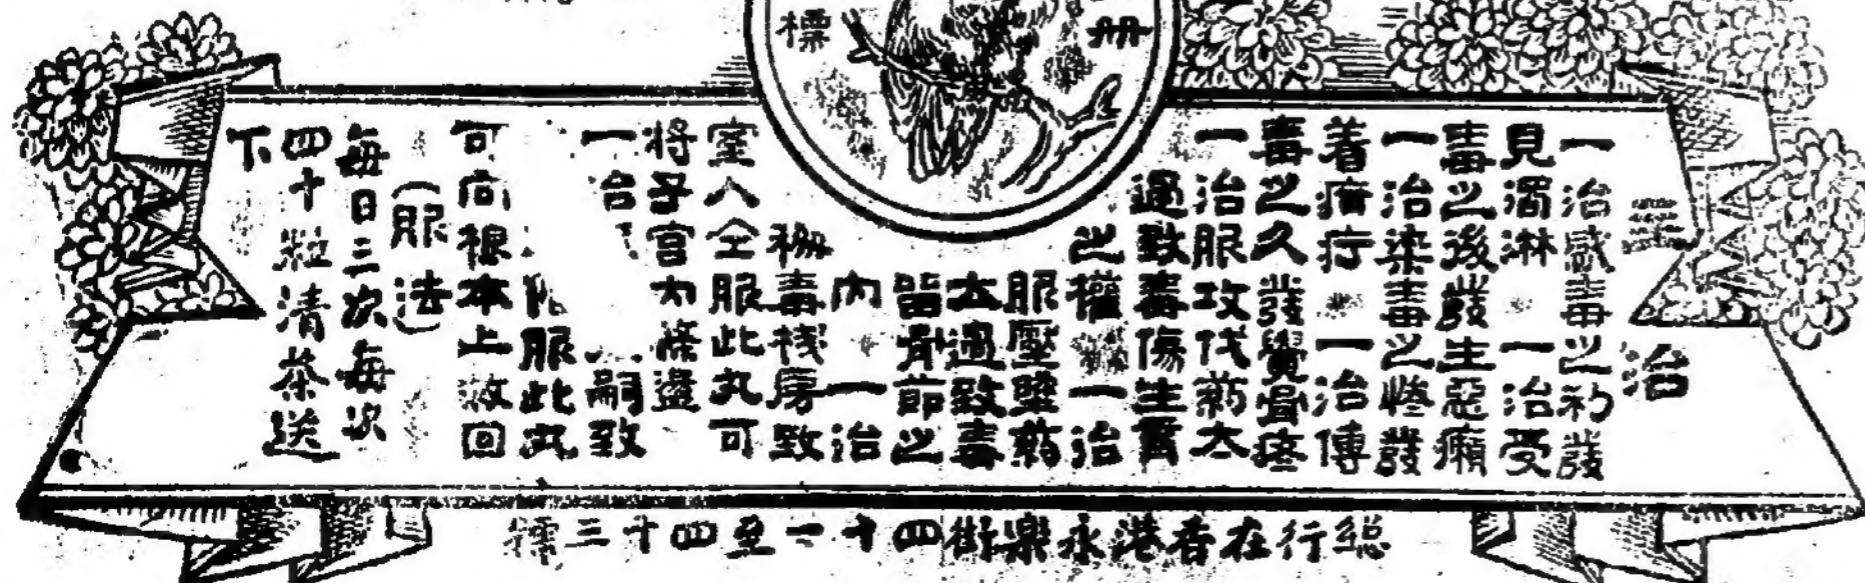 冊
標
主治
一治感毒之初發
見濁淋 一治受
毒之後發生惡癩
一治染毒之慘發
着疳疔 一治傳
毒之久發覺骨疼
一治服攻伐葯太
過致毒傷生育
之權 一治
服壓墜葯
太過致毒
留骨節之
內 一治
毒殘房致
室人全服此丸可
將子宮內餘邊
一治 嗣致
服此丸
可向根本上救回
(服法)
每日三次每次
四十粒清茶送
下
總行在香港永樂街四十一至四十三號